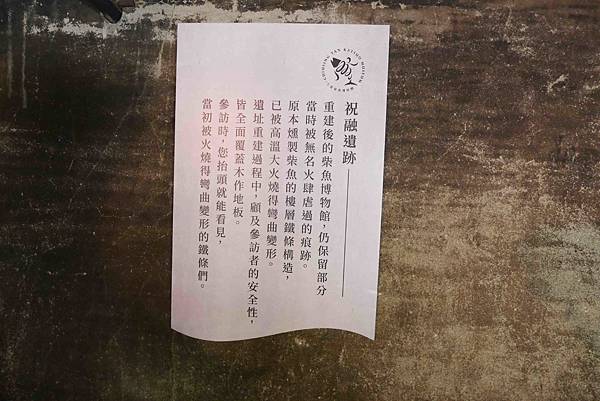 祝融遺跡
重建後的柴魚博物館,仍保留部分
當時被無名火肆虐過的痕跡。
原本燻製柴魚的樓層鐵條構造,
已被高溫大火燒得彎曲變形。
遺址重建過程中,顧及參訪者的安全性,
皆全面覆蓋木作地板。
參訪時,您抬頭就能看見,
當初被火燒得彎曲變形的鐵條們。